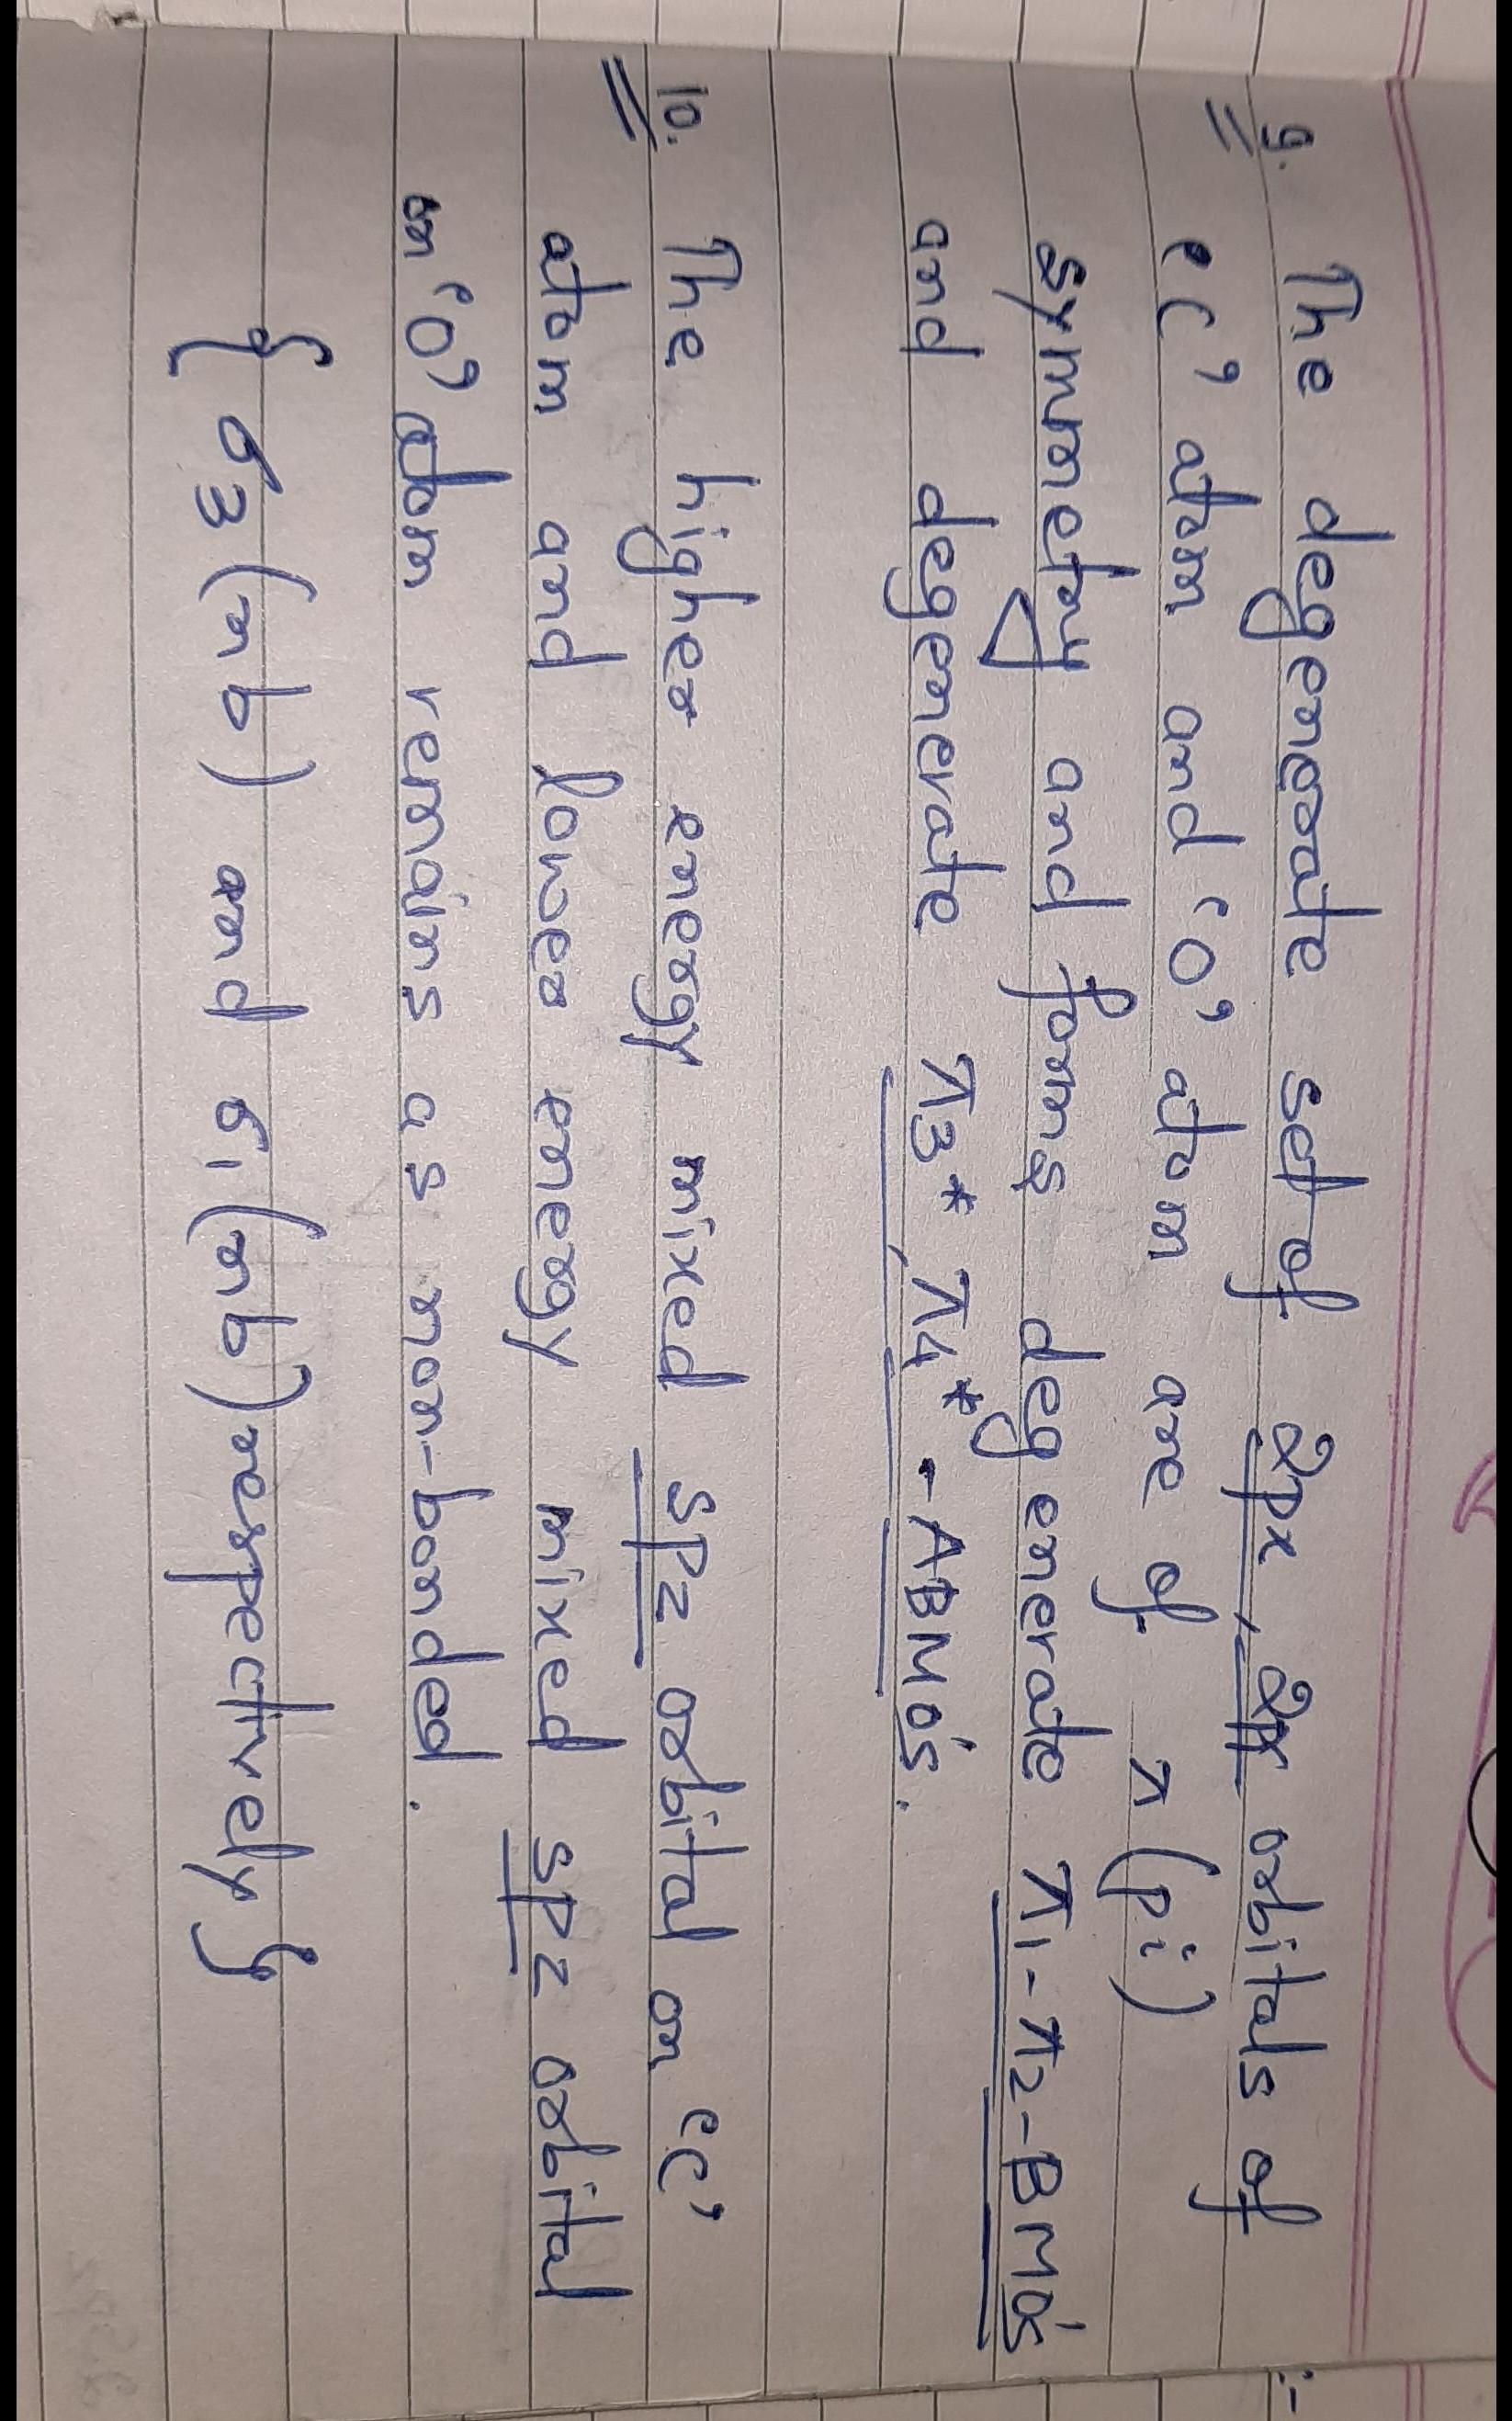 9. The degenerate set of 2px, 2py orbitals of
'C' atom and 'O' atom are of π (pi)
symmetry and forms degenerate π1-π2-BMO's
and degenerate π3*, π4* -ABMO's.
10. The higher energy mixed SPz orbital on 'C'
atom and lower energy mixed SPz orbital
on 'O' atom remains as non-bonded.
{ σ3 (nb) and σ1 (nb) respectively }